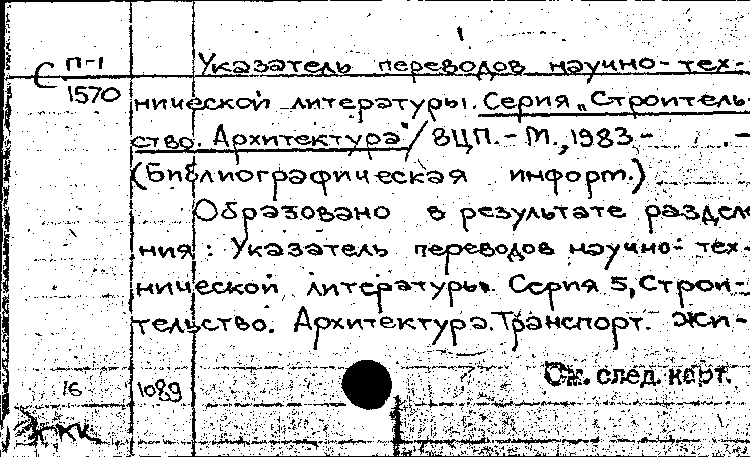 С П-1
1570
Указатель переводов научно-тех-
нической литературы. Серия „Строитель
ство. Архитектура“/ ВЦП.-М.,1983-
(Библиографическая информ.)
Образовано в результате разделе
ния: Указатель переводов научно-тех-
нической литературы. Серия 5, Строи-
тельство. Архитектура. Транспорт. Жи-
См. след. карт.
16 1089